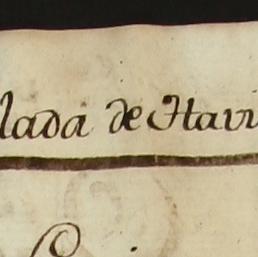 lada de Havi